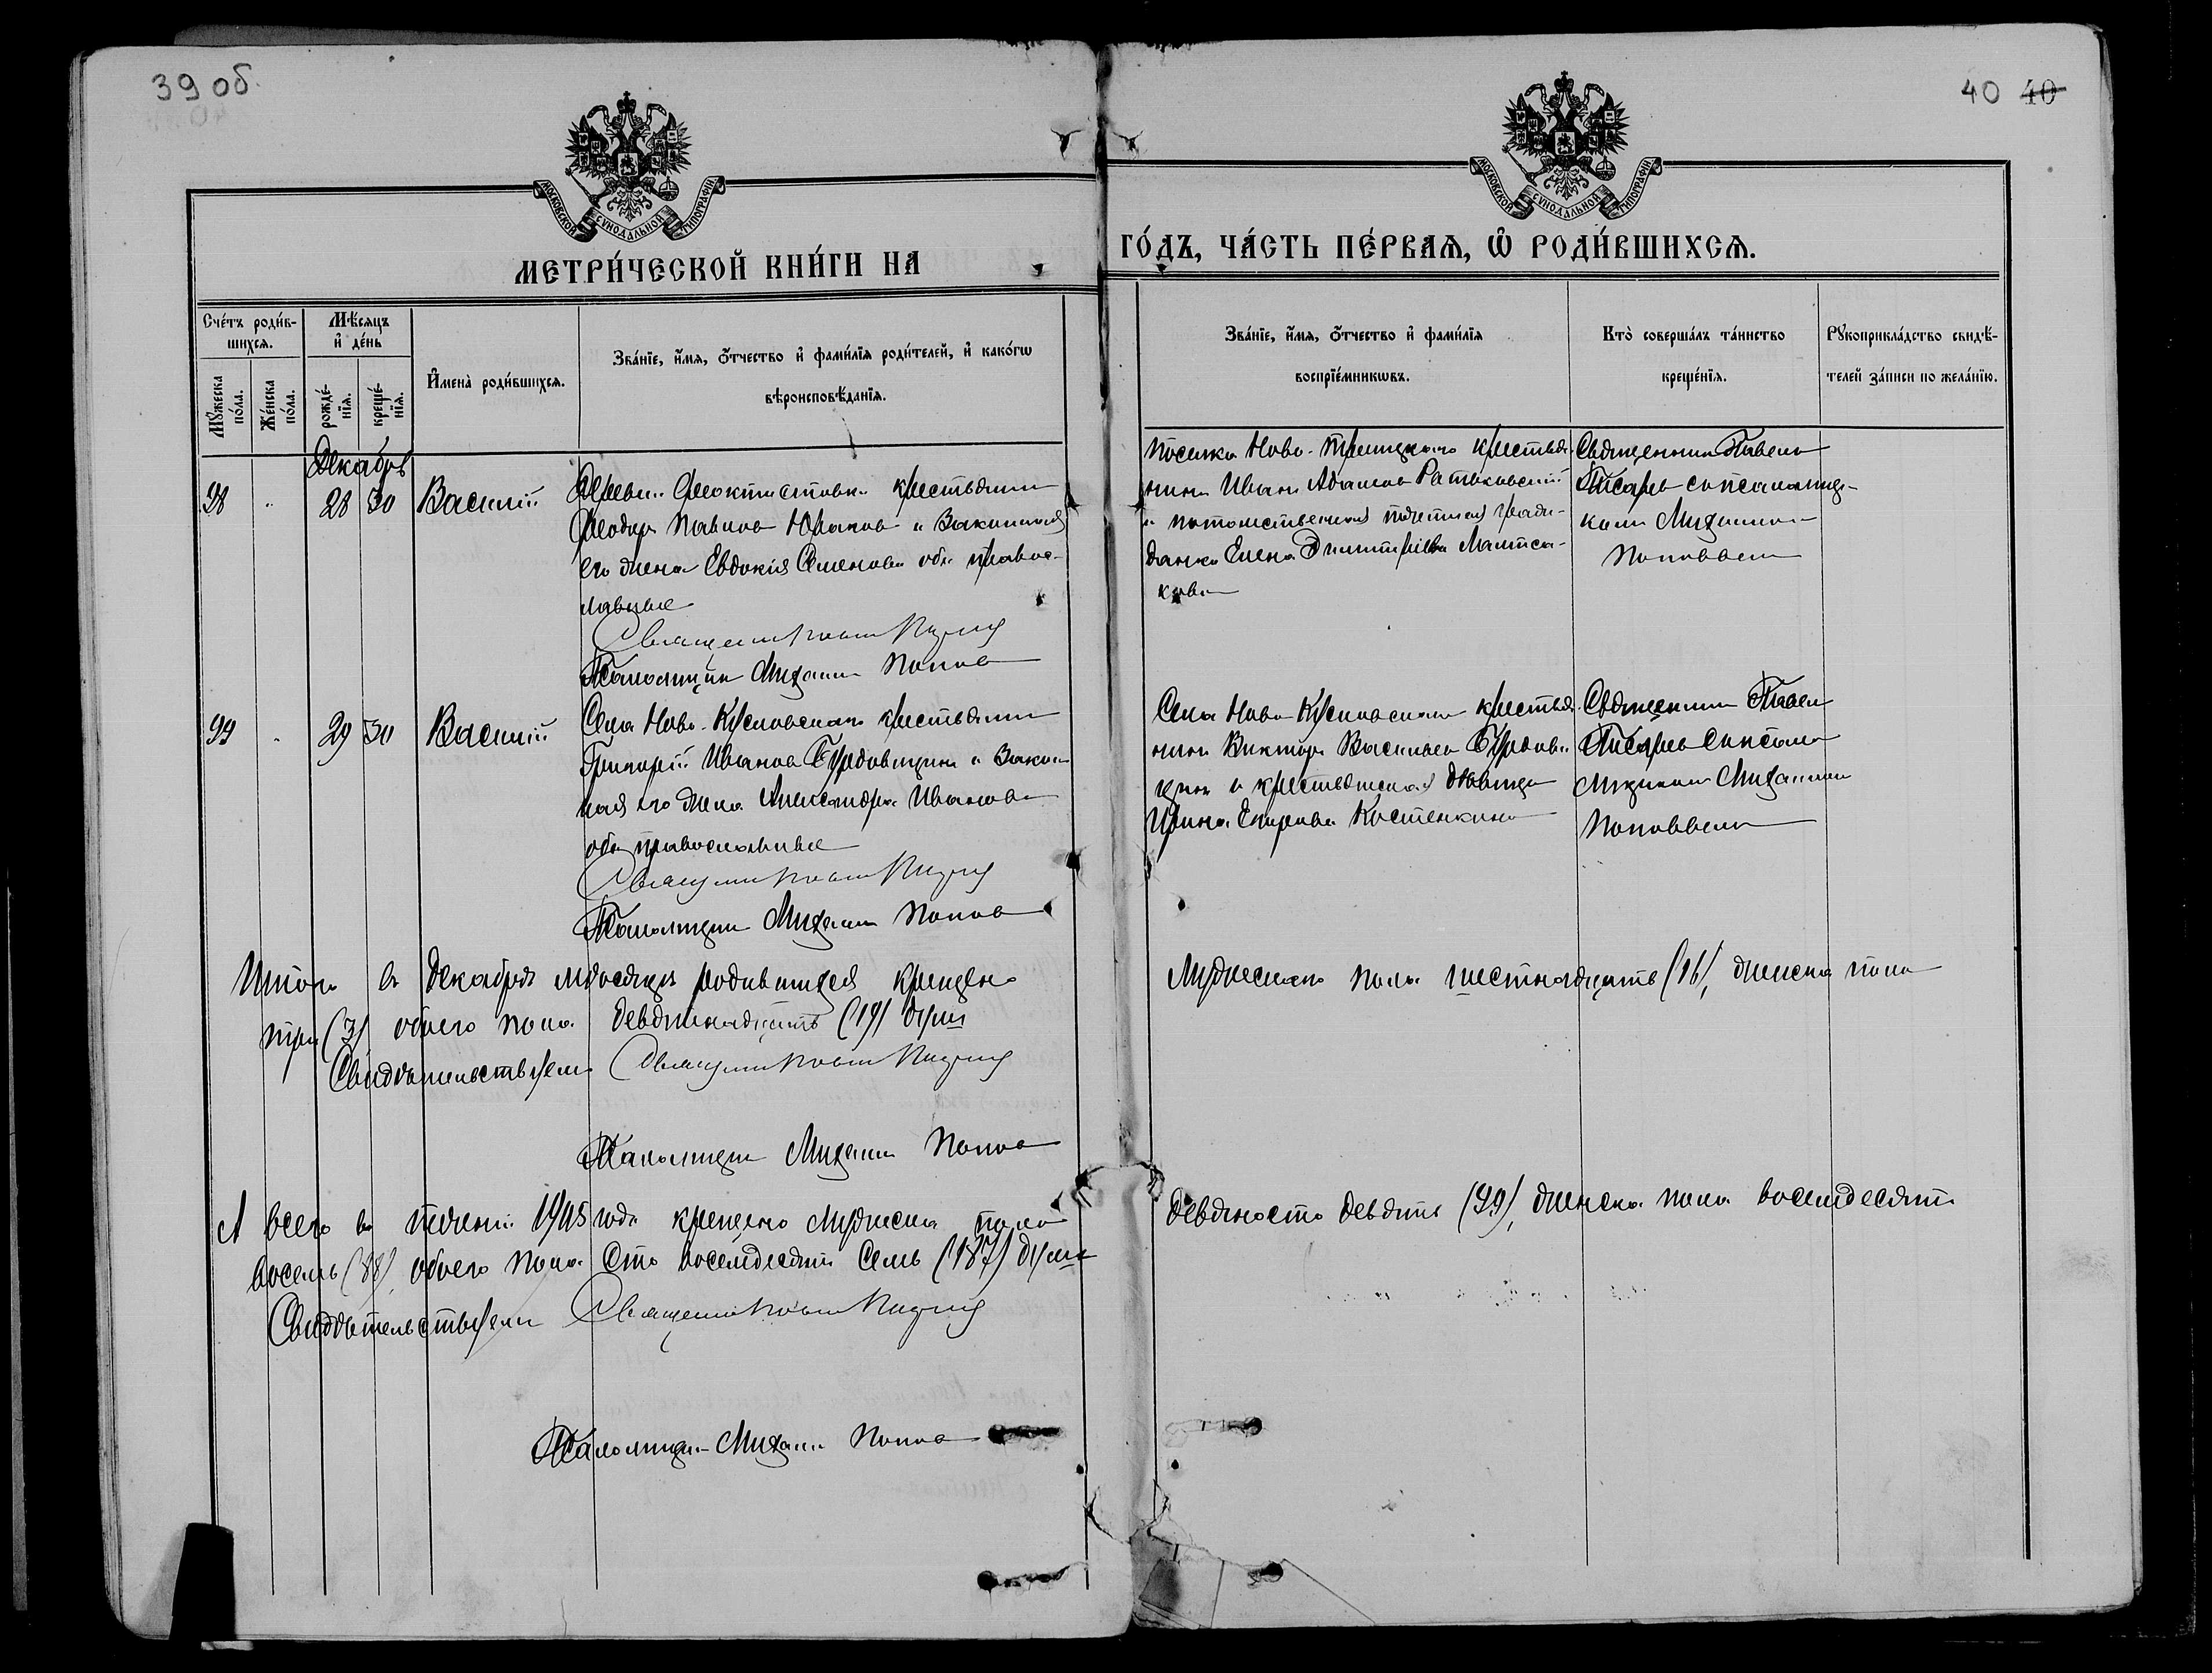 39 об.
40 40
МОСКОВСКОЙ СѴНОДАЛЬНОЙ ТИПОГРАФІИ
МОСКОВСКОЙ СѴНОДАЛЬНОЙ ТИПОГРАФІИ
МЕТРИ́ЧЕСКОЙ КНИ́ГИ НА
ГО́ДЪ, ЧА́СТЬ ПЕ́РВАЯ, Ѡ҆ РОДИ́ВШИХСЯ.
Сче́тъ роди́в-
шихся.
Мѣ́сяцъ
и҆ де́нь
Мꙋ́жеска
по́ла.
Же́нска
по́ла.
рожде́-
нїя.
креще́-
нїя.
И҆мена̀ роди́вшихся.
Зва́нїе, и҆́мя, о҆́тчество и҆ фами́лїя роди́телей, и҆ како́гѡ
вѣроисповѣ́данїя.
Зва́нїе, и҆́мя, о҆́тчество и҆ фами́лїя
воспрїе́мникѡвъ.
Кто̀ соверша́лъ та́инство
креще́нїя.
Рꙋкоприкла́дство свидѣ́-
телей за́писи по жела́нїю.
Декабрь
98 " 28 30 Василій
Деревни Феоктистовки крестьянинъ
Феодоръ Павловъ Юраковъ и законная
его жена Евдокія Семенова оба правос-
лавные
Священник
Псаломщикъ Михаилъ Поповъ
поселка Ново-Троицкаго крестья-
нинъ Иванъ Адамовъ Ратьковскій
и потомственная почетная граж-
данка Елена Димитріева
кова
Священникъ Павелъ
Писаревъ съ псаломщи-
комъ Михаиломъ
Поповымъ
99 " 29 30 Василій
Села Ново-Кусковскаго крестьянинъ
Григорій Иванов Бурдовицинъ и закон-
ная его жена Александра Иванова
оба православные
Священник
Псаломщикъ Михаилъ Поповъ
Села Ново-Кусковскаго крестья-
нинъ Викторъ Васильев Бурдови-
цинъ и крестьянская дѣвица
Ирина Егорова Костенкина
Священникъ Павелъ
Писаревъ съ псало-
мщикомъ Михаиломъ
Поповымъ
Итого въ Декабрѣ мѣсяцѣ родившихся крещено
Мужескаго пола шестнадцать (16), женска пола
три (3) обоего пола девятнадцать (19) душъ
Свидѣтельствуемъ Священник
Псаломщикъ Михаилъ Поповъ
А всего въ теченіи 1905 года крещено мужеска пола
девяносто девять (99), женска пола восемьдесятъ
восемь (88), обоего пола Сто восемьдесятъ Семь (187) душъ
Свидѣтельствуемъ Священник
Псаломщикъ Михаилъ Поповъ